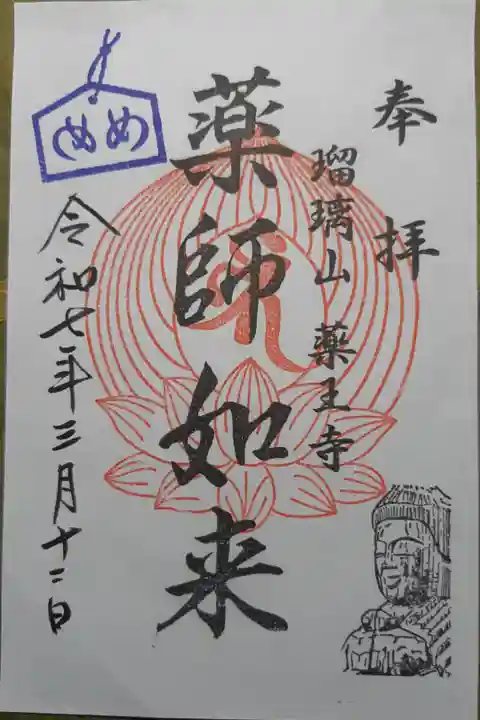 奉拝
瑠璃山 薬王寺
薬師如来
めめ
令和七年三月十二日